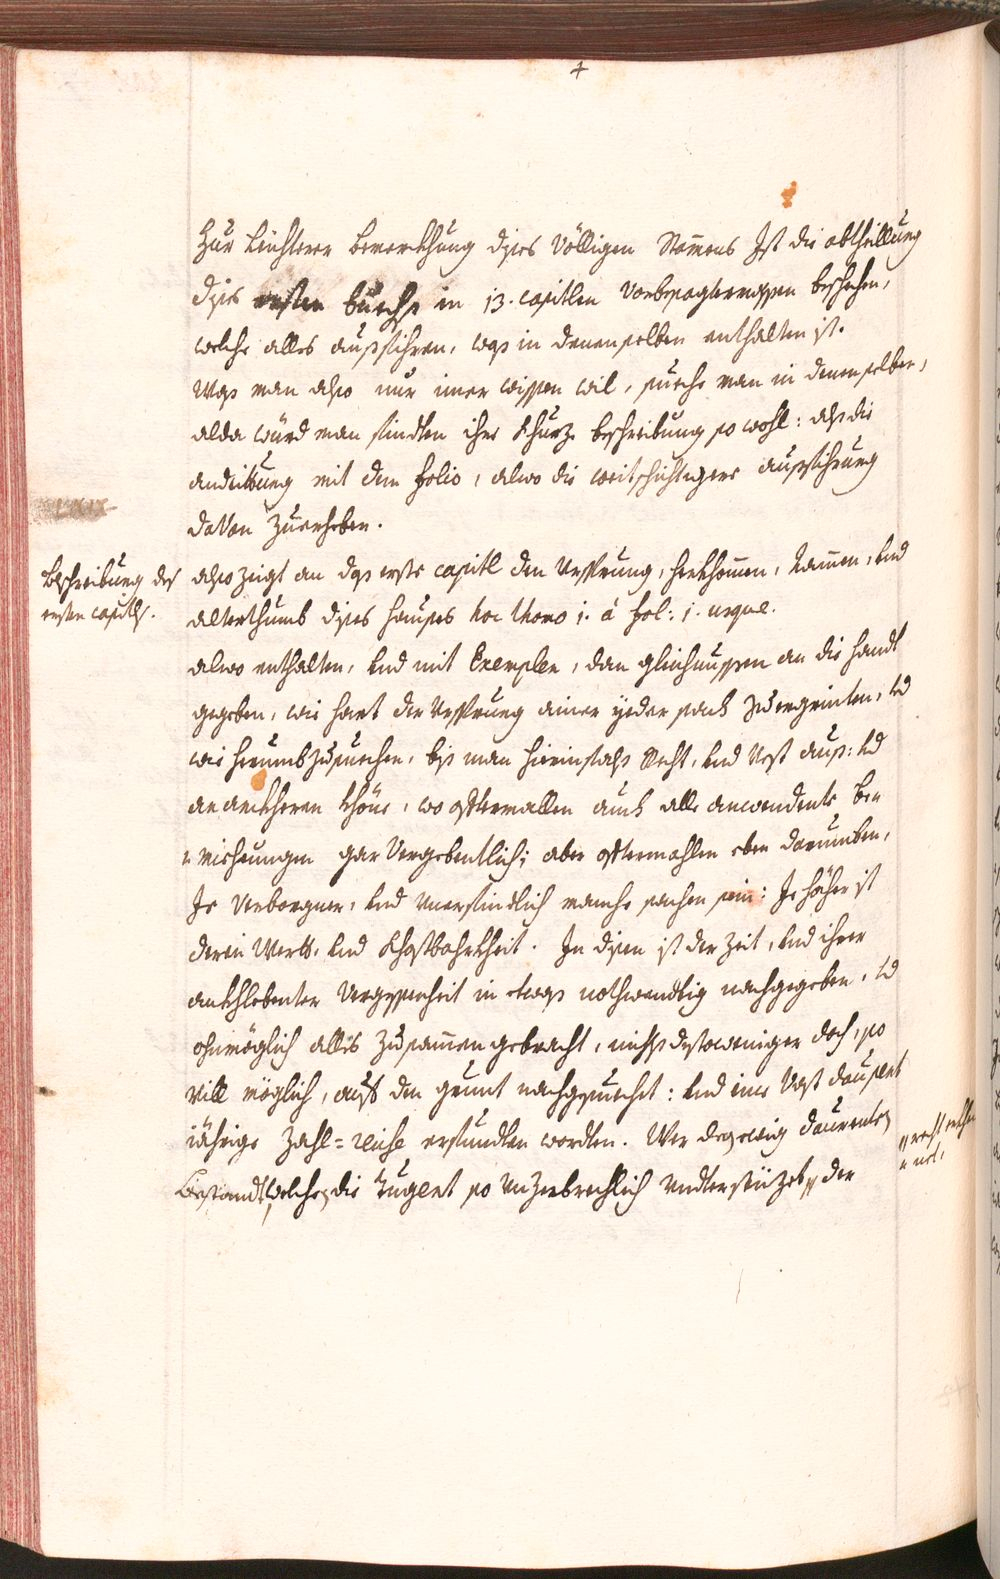 Zur Leuchterer bemerckhung dises völligen Stamens Ist die abtheillung
dises ersten buechs in 13. capitlen vorbesagtermassen beschehen,
welche alles ausfihren, was in denenselben enthalten ist.
Was man also nur imer wissen wil, sueche man in denenselben,
alda würd man findten ihre khurze beschreibung so wohl: als die
andeittung mit dem folio, alwo die weitschichtigere ausfihrung
davon zuerheben.
Beschreibung des
ersten capitls.
also zeigt an das erste capitl den Ursprung, herkhomen, Namen, und
alterthumb dises hauses hoc thomo j. á fol: j. usque.
alwo enthalten, und mit Exemplen, dan gleichnussen an die handt
gegeben, wie hart der Ursprung ainer yeder sach zu ergrinten, und
wie herumb zusuechen, bis man hierinfahls Recht, und Vest aus: und
an anckheren khöne, wo offtermallen auch alle anwendente Be-
miehungen gar Vergebentlich; aber offtermahlen eben darumben,
Je Verborgner, und unerfindlich manche sachen sein: Je höcher ist
deren Werth, und Khostbahrkheit. In disen ist der Zeit, und ihrer
ankhlebenter Vergessenheit in etwas nothwendtig nachgegeben, und
ohnmöglich alles zusamen gebracht, nichts destoweniger doch, so
vill möglich, auf den grunt nachgesuechet: und eine Vast dausent
jährige Zahl=reiche erfundten worden. Wer das ewig daurente
Bestandt, welches die Tugent so unzerbrechlich undterstüzet, der
recht